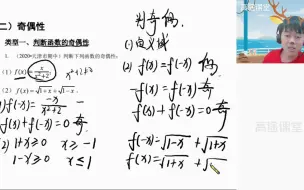 二）奇偶性
类型一、判断函数的奇偶性
1.（2020•天津市期中）判断下列函数的奇偶性：
(1) f(x)=x/(x²+2)  x²+2≥0
(2) f(x)=√(1+x)+√(1-x)
f(-x)=-x/(x²+2)
f(x)+f(-x)=0 奇
(2) 1+x≥0 x≥-1
1-x≥0 x≤1
判奇偶
(1) 定义域
(2) f(x)=f(-x) 偶
-f(x)=f(-x)
f(x)+f(-x)=0 奇
f(-x)=√(1-x)+√(1+x)
f(x)=√(1+x)+√
高途课堂